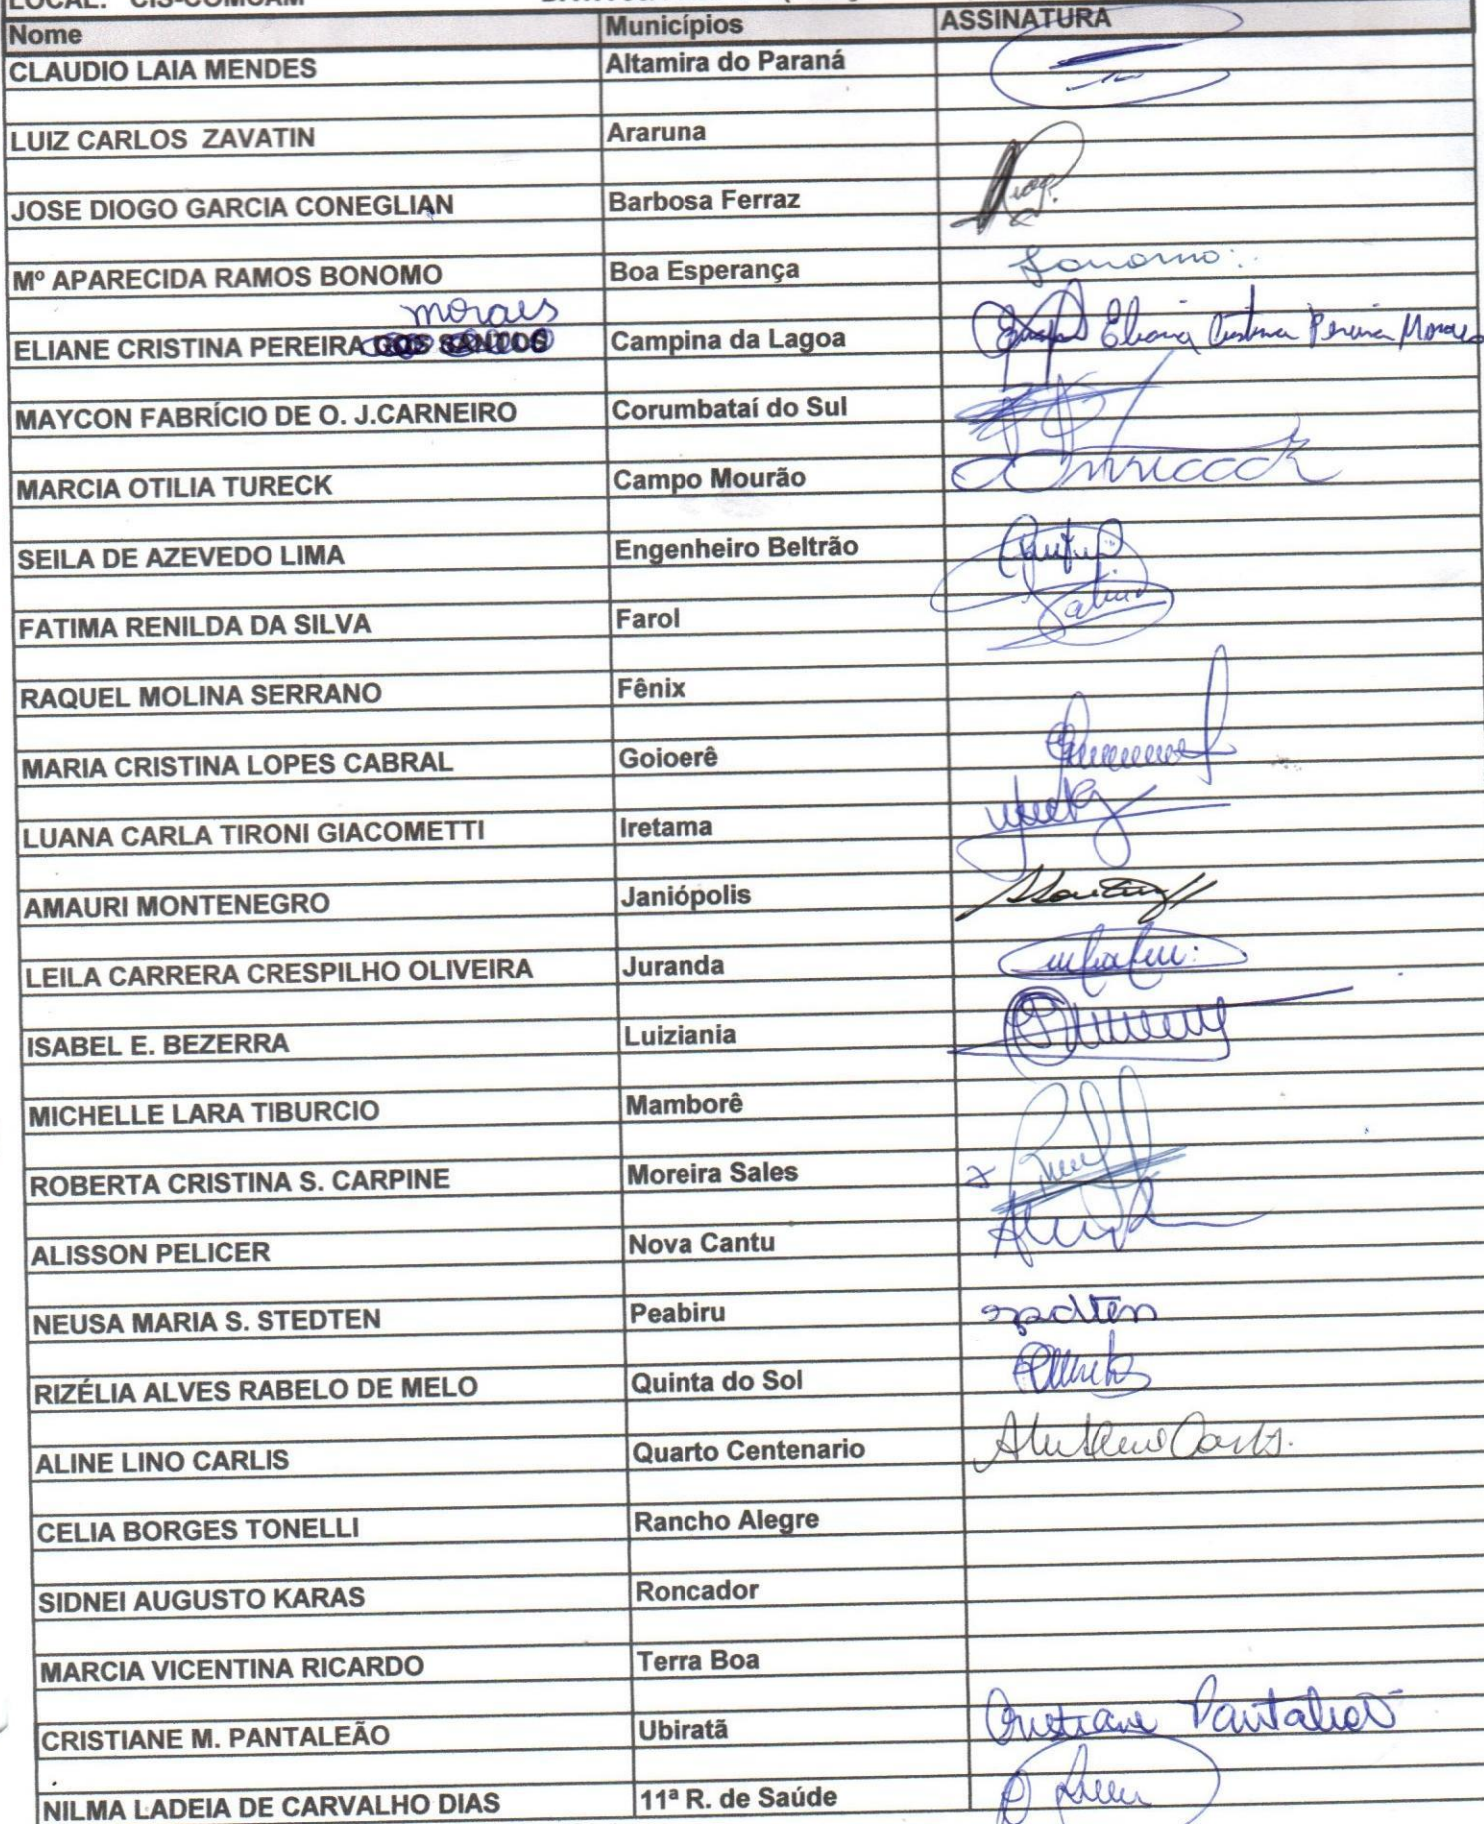 LOCAL: CIS-COMCAM
Nome Municípios ASSINATURA
CLAUDIO LAIA MENDES Altamira do Paraná
LUIZ CARLOS ZAVATIN Araruna
JOSE DIOGO GARCIA CONEGLIAN Barbosa Ferraz
Mº APARECIDA RAMOS BONOMO Boa Esperança
moraes
ELIANE CRISTINA PEREIRA Campina da Lagoa Cristina Pereira Moraes
MAYCON FABRÍCIO DE O. J.CARNEIRO Corumbataí do Sul
MARCIA OTILIA TURECK Campo Mourão
SEILA DE AZEVEDO LIMA Engenheiro Beltrão
FATIMA RENILDA DA SILVA Farol
RAQUEL MOLINA SERRANO Fênix
MARIA CRISTINA LOPES CABRAL Goioerê
LUANA CARLA TIRONI GIACOMETTI Iretama
AMAURI MONTENEGRO Janiópolis
LEILA CARRERA CRESPILHO OLIVEIRA Juranda
ISABEL E. BEZERRA Luiziania
MICHELLE LARA TIBURCIO Mamborê
ROBERTA CRISTINA S. CARPINE Moreira Sales
ALISSON PELICER Nova Cantu
NEUSA MARIA S. STEDTEN Peabiru
RIZÉLIA ALVES RABELO DE MELO Quinta do Sol
ALINE LINO CARLIS Quarto Centenario
CELIA BORGES TONELLI Rancho Alegre
SIDNEI AUGUSTO KARAS Roncador
MARCIA VICENTINA RICARDO Terra Boa
CRISTIANE M. PANTALEÃO Ubiratã Cristiane Pantaleão
NILMA LADEIA DE CARVALHO DIAS 11ª R. de Saúde